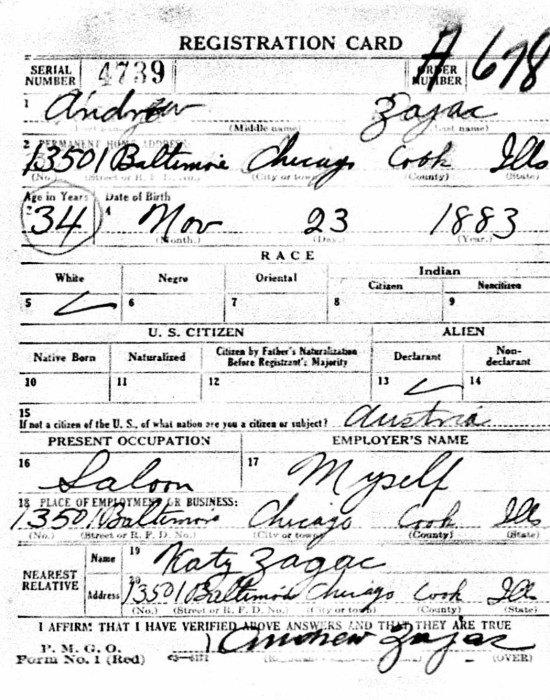 REGISTRATION CARD
SERIAL NUMBER 4739 ORDER NUMBER A 678
1 Andrew Zajac
(Middle name) (Last name)
2 PERMANENT HOME ADDRESS:
13501 Baltimore Chicago Cook Ills
(No.) (Street or R. F. D. No.) (City or town) (County) (State)
Age in Years Date of Birth
3 34 4 Nov 23 1883
(Month.) (Day.) (Year.)
RACE
White Negro Oriental Indian
Citizen Noncitizen
5 ✓ 6 7 8 9
U. S. CITIZEN ALIEN
Native Born Naturalized Citizen by Father's Naturalization Before Registrant's Majority Declarant Non-declarant
10 11 12 13 ✓ 14
15
If not a citizen of the U. S., of what nation are you a citizen or subject? Austria
PRESENT OCCUPATION EMPLOYER'S NAME
16 Saloon 17 Myself
18 PLACE OF EMPLOYMENT OR BUSINESS:
13501 Baltimore Chicago Cook Ills
(No.) (Street or R. F. D. No.) (City or town) (County) (State)
NEAREST RELATIVE Name 19 Katy Zagac
Address 20 13501 Baltimore Chicago Cook Ills
(No.) (Street or R. F. D. No.) (City or town) (County) (State)
I AFFIRM THAT I HAVE VERIFIED ABOVE ANSWERS AND THAT THEY ARE TRUE
P. M. G. O.
Form No. 1 (Red) Andrew Zajac
(OVER)